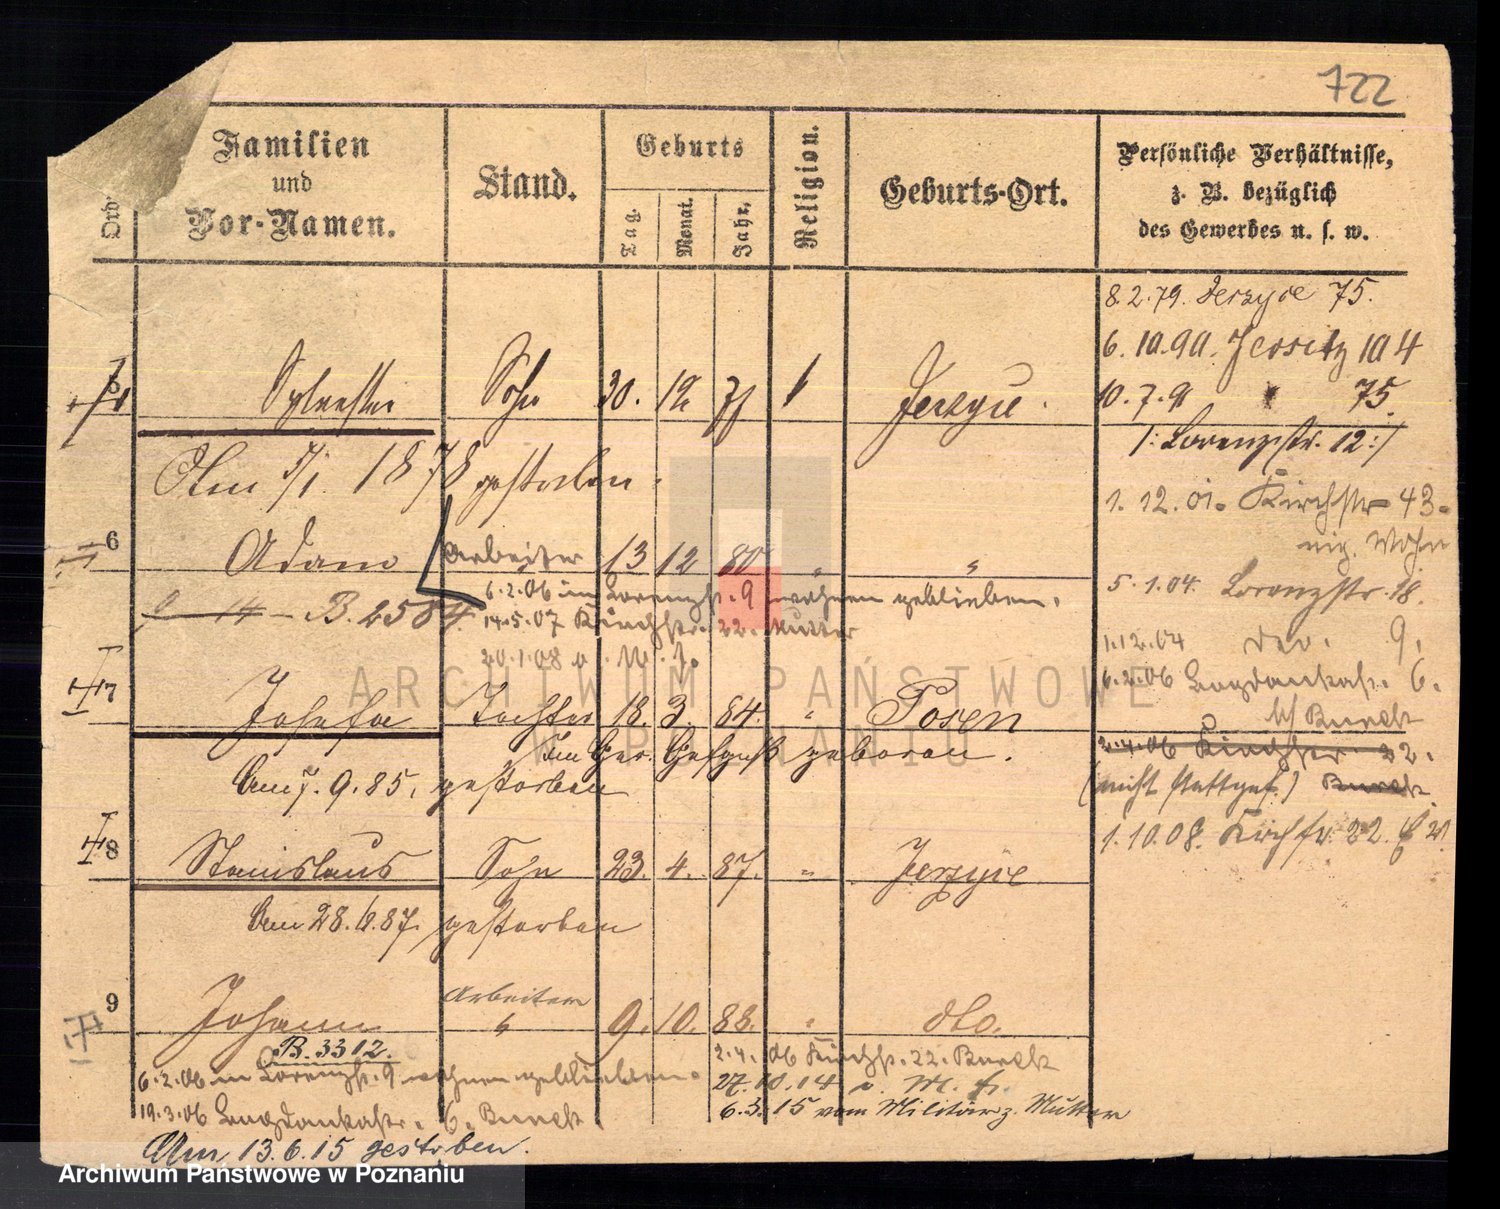 722
Ord
Familien und Vor-Namen.
Stand.
Geburts
Tag.
Monat.
Jahr.
Religion.
Geburts-Ort.
Persönliche Verhältnisse,
z. B. bezüglich
des Gewerbes u. s. w.
8.2.79. Jerzyce 75.
6.10.90. Jersitz 104
10.7.91 " 75.
/: Lorenzstr. 12 :/
1.12.01. Kirchstr 43.
eig. Wohn
5.1.04. Lorenzstr. 18.
1.12.04 9.
6.2.06 6.
b/ Bureck
2.4.06 Kirchstr. 22.
(nicht stattgef.) Bureck
1.10.08. Kirchstr. 22.
5 Sylvester Sohn 30. 12 77 k Jerzyce.
Am 5/1. 1878 gestorben.
6 Adam Arbeiter 13 12 80 " "
B. 2584.
6.2.06 in Lorenzstr. 9 wohnen geblieben.
14.5.07 Kirchstr. 22. Mutter
20.1.08
7 Josefa Tochter 18. 3. 84. " Posen
Im Ger. Gefgniß geboren.
Am 7. 9. 85. gestorben
8 Stanislaus Sohn 23. 4. 87. " Jerzyce
Am 28. 87. gestorben
9 Johann Arbeiter " 9. 10. 88. " dto.
B. 3312.
6.2.06 in Lorenzstr. 9 wohnen geblieben.
2.4.06 Kirchstr. 22. Bureck
27.10.14 v. M. f.
19.3.06 6. Bureck
6.3.15 vom Militär z. Mutter
Am 13.6.15 gestorben.
ARCHIWUM PAŃSTWOWE
W POZNANIU
Archiwum Państwowe w Poznaniu